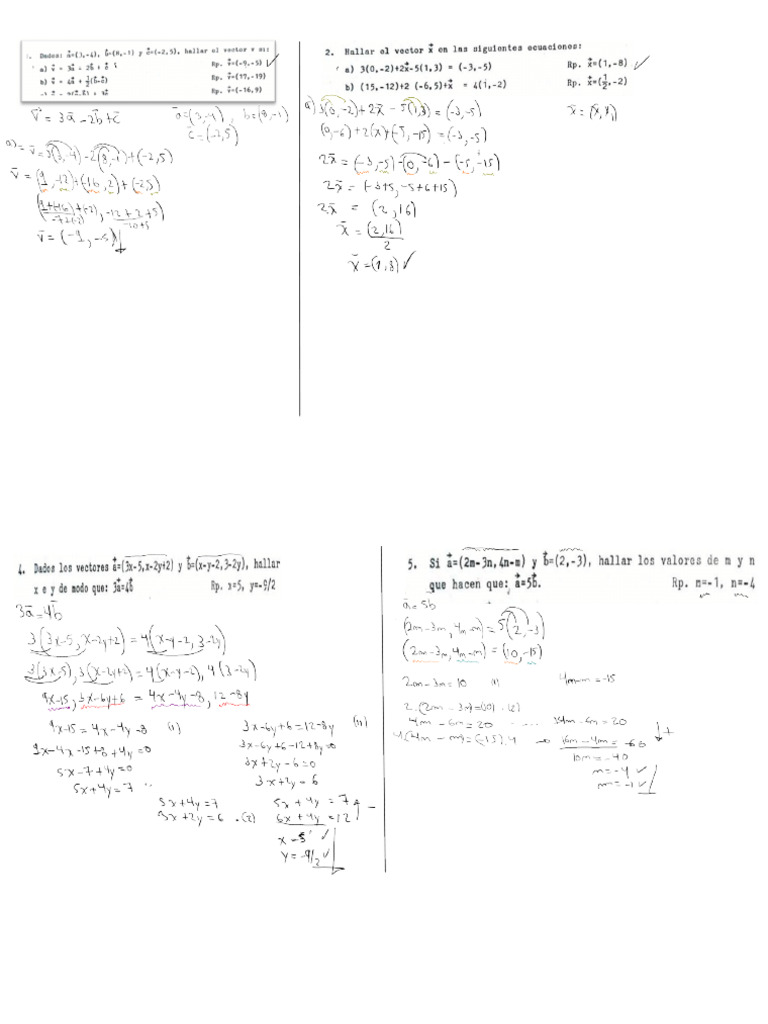 Dados: a⃗=(3,-4), b⃗=(8,-1) y c⃗=(-2,5), hallar el vector v si:
a) v⃗ = 3a⃗ - 2b⃗ + c⃗ Rp. v⃗=(-9,-5)
b) v⃗ = 4a⃗ + ½(b⃗-c⃗) Rp. v⃗=(17,-19)
Rp. v⃗=(-16,9)
V̄ = 3ā - 2b̄ + c̄
ā=(3,-4), b=(8,-1)
c̄=(-2,5)
a) = v̄ = 3(3,-4) - 2(8,-1) + (-2,5)
v̄ = (9,-12)+(-16,2)+(-2,5)
(9+(-16)+(-2), -12+2+5)
-7+(-2) -10+5
v̄ = (-9,-5)
2. Hallar el vector x⃗ en las siguientes ecuaciones:
a) 3(0,-2)+2x⃗-5(1,3) = (-3,-5) Rp. x⃗=(1,-8)
b) (15,-12)+2 (-6,5)+x⃗ = 4(1,-2) Rp. x⃗=(½,-2)
a) 3(0,-2)+2x̄ -5(1,3)=(-3,-5)
x̄=(x,y)
(0,-6)+2(x)+(-5,-15)=(-3,-5)
2x̄=(-3,-5)-(0,-6)-(-5,-15)
2x̄=(-3+5,-5+6+15)
2x̄ = (2,16)
x̄ = (2,16)
2
x̄=(1,8) ✓
4. Dados los vectores a⃗=(3x-5,x-2y+2) y b⃗=(x-y-2,3-2y), hallar
x e y de modo que: 3a⃗=4b⃗ Rp. x=5, y=-9/2
3ā=4b̄
3(3x-5, x-2y+2)=4(x-y-2, 3-2y)
3(3x-5), 3(x-2y+2)=4(x-y-2), 4(3-2y)
9x-15, 3x-6y+6 = 4x-4y-8, 12-8y
9x-15=4x-4y-8 (1) 3x-6y+6=12-8y (2)
9x-4x-15+8+4y=0 3x-6y+6-12+8y=0
5x-7+4y=0 3x+2y-6=0
5x+4y=7 3x+2y=6
5x+4y=7 5x+4y=7
3x+2y=6 .(2) 6x+4y=12
x=5 ✓
y=-9/2 ✓
5. Si a⃗=(2m-3n,4n-m) y b⃗=(2,-3), hallar los valores de m y n
que hacen que: a⃗=5b⃗. Rp. m=-1, n=-4
ā=5b
(2m-3n, 4n-m)=5(2,-3)
(2m-3n, 4n-m)=(10,-15)
2m-3n=10 (1) 4n-m=-15